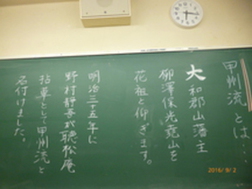 甲州流とは…
大和郡山藩主
柳澤保光堯山を
花祖と仰ぎます。
明治三十五年に
野村静吾が聴松庵
拈華として甲州流と
名付けました。
2016/9/2